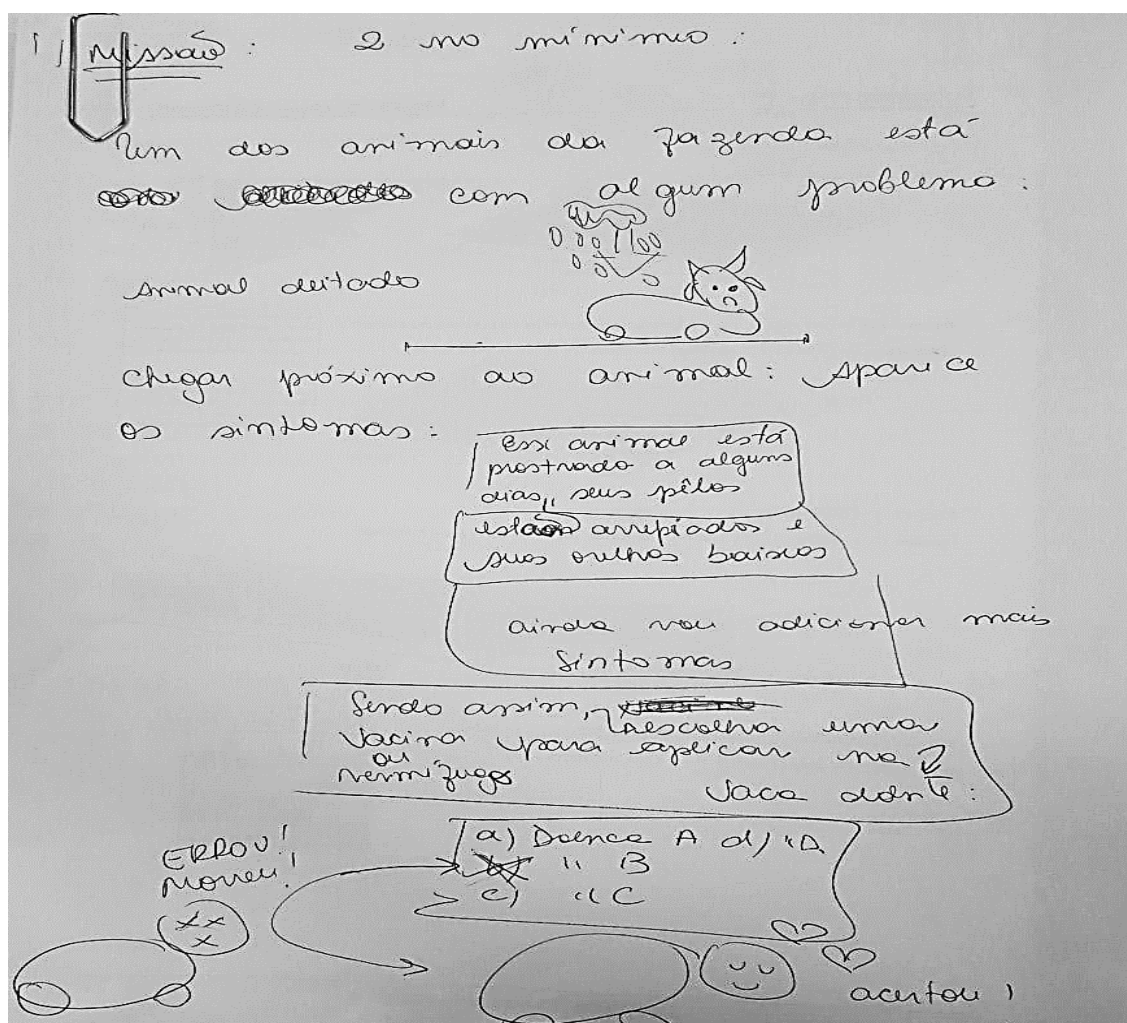 1) Missão: 2 no mínimo:
Um dos animais da fazenda está
com algum problema:
Animal deitado
chegar próximo ao animal: Aparece
os sintomas:
Esse animal está
prostrado a alguns
dias, seus pêlos
estão arrepiados e
suas orelhas baixas
ainda vou adicionar mais
sintomas
Sendo assim, escolha uma
vacina para aplicar na
ou
vermífugos
vaca doente:
a) Doença A d) " D
" B
c) " C
ERROU!
Morreu!
acertou!